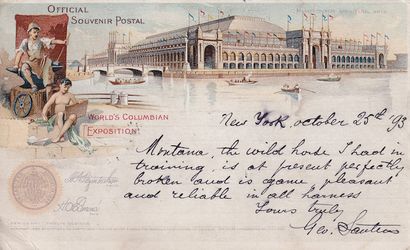 OFFICIAL
SOUVENIR POSTAL
WORLD'S COLUMBIAN
EXPOSITION.
New York, october 25th '93
Montana, the wild horse I had in
training, is at present perfectly
broken and is game, pleasant
and reliable in all harness
Yours truly
Geo.